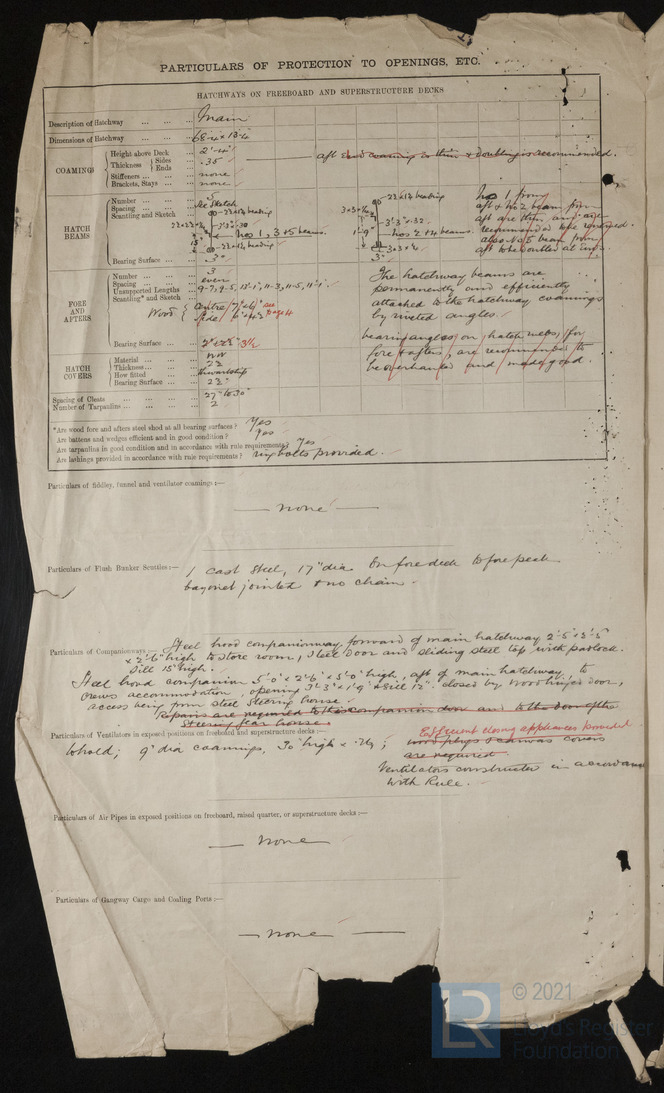 PARTICULARS OF PROTECTION TO OPENINGS, ETC.
HATCHWAYS ON FREEBOARD AND SUPERSTRUCTURE DECKS
Description of Hatchway Main
Dimensions of Hatchway 68-4 x 13-4
COAMINGS
Height above Deck 2'-4"
Thickness Sides .35
Ends
Stiffeners none
Brackets, Stays none
aft end coaming is thin & doubling is recommended.
HATCH BEAMS
Number 5
Spacing See Sketch
Scantling and Sketch
22x14 bearing
has 1, 3 & 5 beams.
22x14 bearing
Bearing Surface 3"
22x14 bearing
3'3" x .32
has 2 & 4 beams.
3"
has 1 from
aft & No 2 beam from
aft are thin and are
recommended to be renewed.
also No 5 beam from
aft to be doubled at ends
FORE AND AFTERS
Number 3
Spacing even
Unsupported Lengths 9-7, 9-5, 12-1, 11-3, 11-5, 11-1
Scantling* and Sketch
Wood Centre 7" x 6" see page 4
Side 6" x 4 3
Bearing Surface 2" x 2½" 3½
The hatchway beams are
permanently and efficiently
attached to the hatchway coamings
by riveted angles.
bearing angles on hatch webs, for
fore & afters, are recommended to
be overhauled and made good.
HATCH COVERS
Material WW
Thickness 2½
How fitted thwartship
Bearing Surface 2½"
Spacing of Cleats 27" to 30"
Number of Tarpaulins 2
*Are wood fore and afters steel shod at all bearing surfaces? Yes
Are battens and wedges efficient and in good condition? Yes
Are tarpaulins in good condition and in accordance with rule requirements? Yes
Are lashings provided in accordance with rule requirements? ring bolts provided.
Particulars of fiddley, funnel and ventilator coamings:—
— none —
Particulars of Flush Bunker Scuttles:— 1 cast steel, 17" dia. On fore deck to fore peak
bayonet jointed & no chain.
Particulars of Companionways:— Steel hood companionway, forward of main hatchway 2'-5" x 3'-5"
x 2'-6" high to store room, Steel Door and sliding steel top with padlock.
Sill 15" high.
Steel hood companion 5'0" x 2'6" x 5'0" high, aft of main hatchway, to
crews accommodation, opening 3'3" x 1'9" & sill 12". closed by wood hinged door,
access being from steel steering house.
Repairs are required to this companion door and to the door of the
Steering Gear house.
Particulars of Ventilators in exposed positions on freeboard and superstructure decks:— Efficient closing appliances provided
to hold; 9" dia coamings, 30" high x .24; wood plugs & canvas covers
are required
Ventilators constructed in accordance
with Rule.
Particulars of Air Pipes in exposed positions on freeboard, raised quarter, or superstructure decks:—
— None —
Particulars of Gangway Cargo and Coaling Ports:—
— none —
LR
© 2021
Lloyd's Register
Foundation